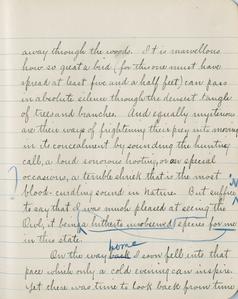 away through the woods. It is marvellous
how so great a bird (for this one must have
spread at least five and a half feet) can pass
in absolute silence through the densest tangle
of trees and branches. And equally mysterious
are their ways of frightening their prey into moving
in its concealment by sounding the hunting
call, a loud sonorous hooting, or on special
occasions, a terrible shriek that is the most
blood-curdling sound in Nature. But suffice
to say that I was much pleased at seeing the
Owl, it being a hitherto unobserved species for me
in this state.
On the way back home I soon fell into that
pace which only a cold evening can inspire.
Yet there was time to look back from time
?